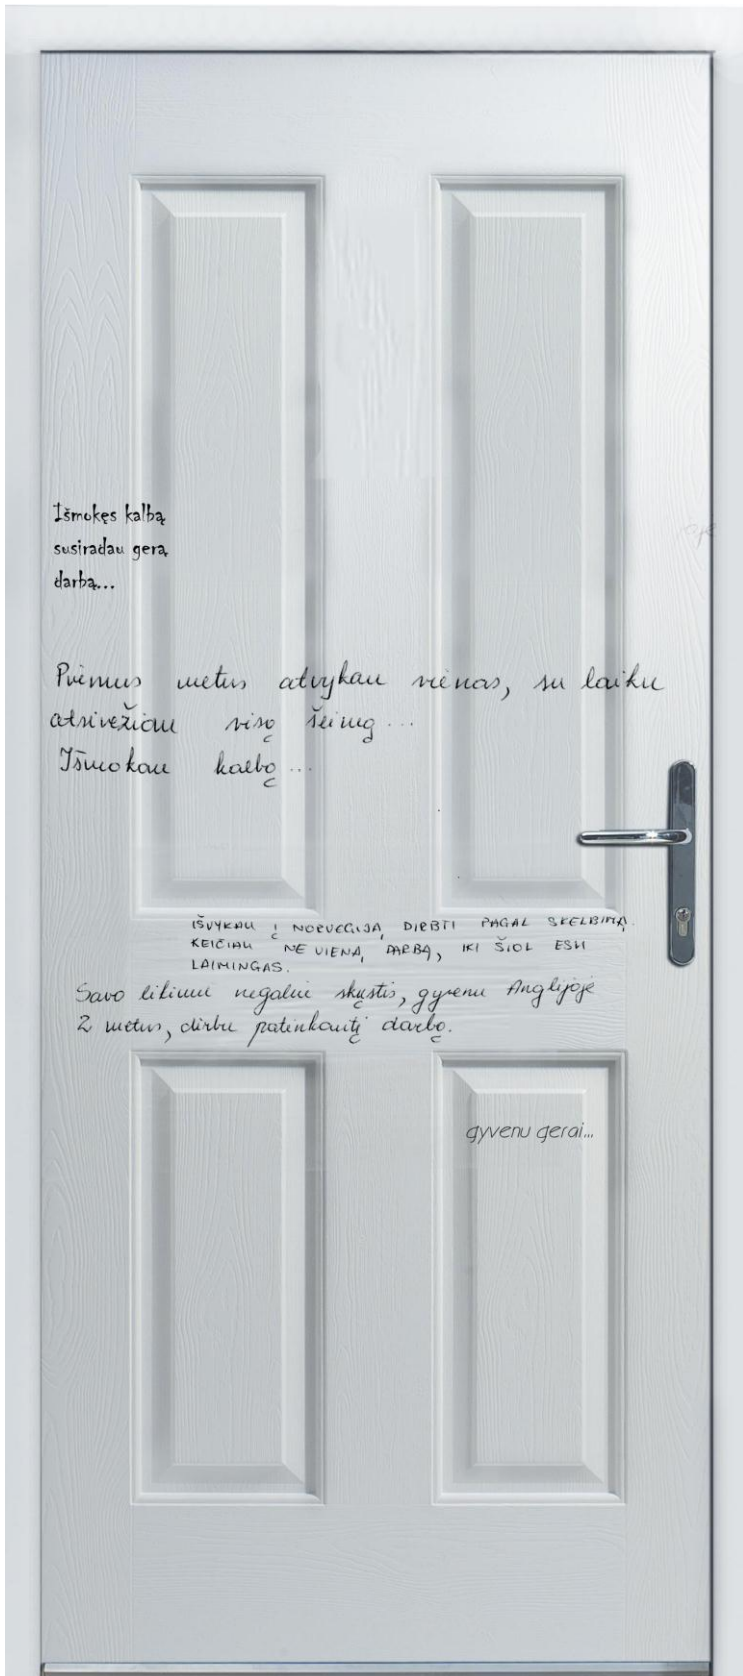 Išmokęs kalbą
susiradau gerą
darbą...
Pirmus metus atvykau vienas, su laiku
atsivežiau visą šeimą...
Išmokau kalbą...
IŠVYKAU Į NORVEGIJĄ DIRBTI PAGAL SKELBIMĄ.
KEIČIAU NE VIENĄ DARBĄ, IKI ŠIOL ESU
LAIMINGAS.
Savo likimu negaliu skųstis, gyvenu Anglijoje
2 metus, dirbu patinkantį darbą.
gyvenu gerai...